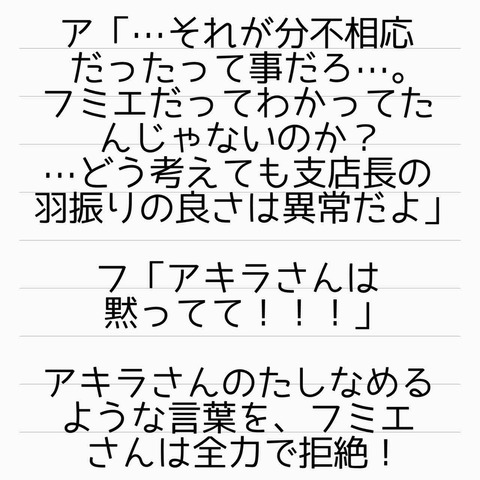 ア「…それが分不相応
だったって事だろ…。
フミエだってわかってた
んじゃないのか？
…どう考えても支店長の
羽振りの良さは異常だよ」
フ「アキラさんは
黙ってて！！！」
アキラさんのたしなめる
ような言葉を、フミエ
さんは全力で拒絶！